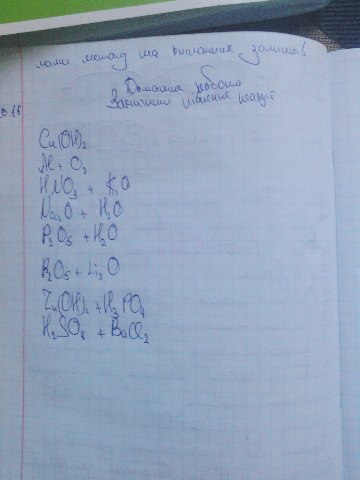 лами металу та кислотних залишків
Домашня робота
Закінчити рівняння реакцій
Cu(OH)₂
Al + O₂
HNO₃ + K₂O
Na₂O + H₂O
P₂O₅ + H₂O
P₂O₅ + Li₂O
Zn(OH)₂ + H₃PO₄
H₂SO₄ + BaCl₂